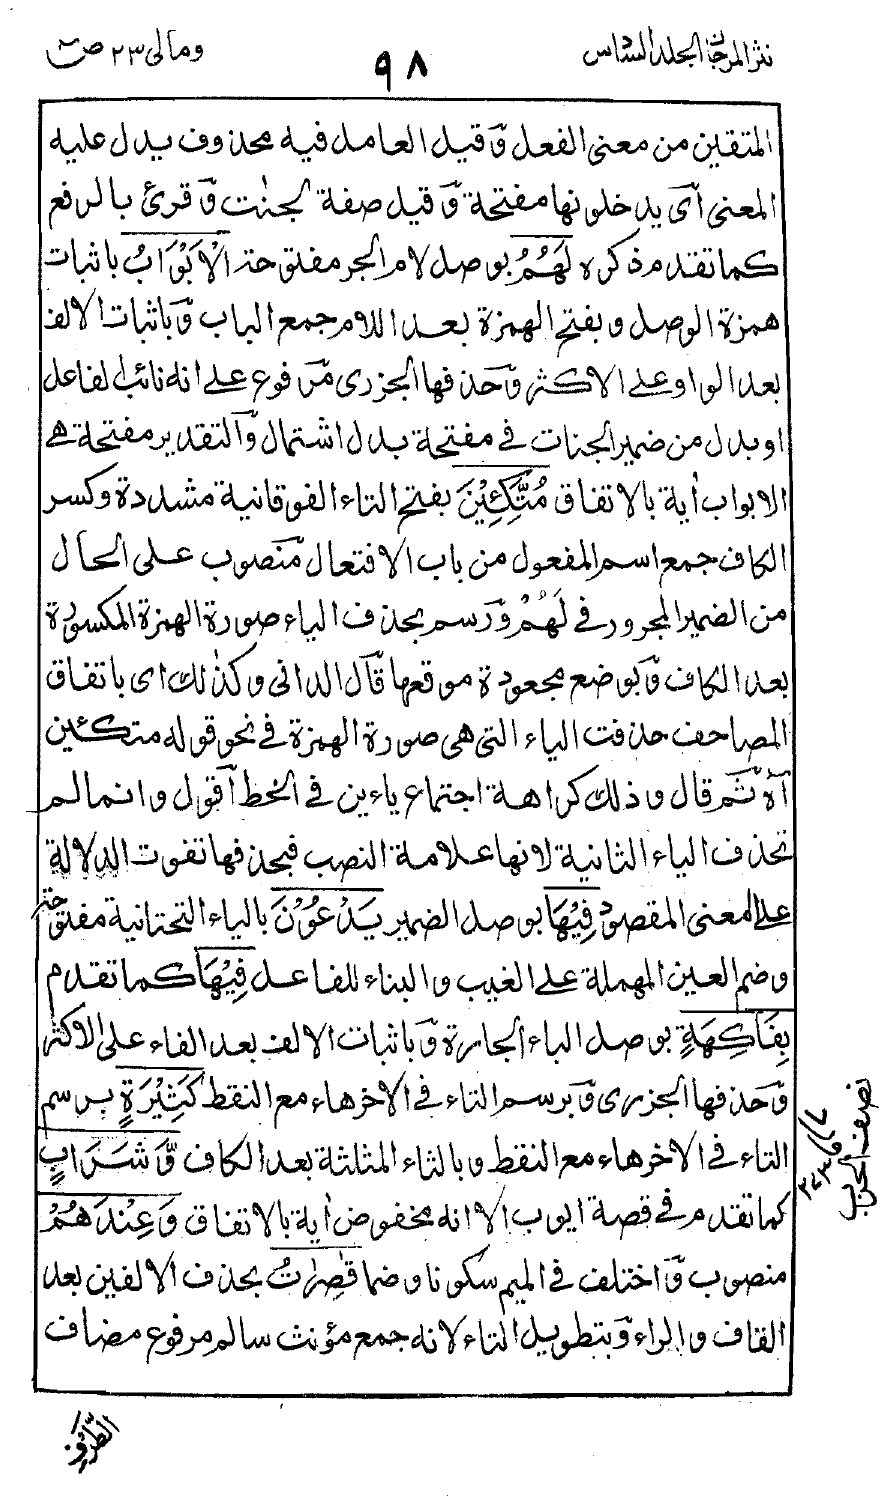 نثر المرجان الجلد السادس
٩٨
ومالى ٢٣ ص
المتقين من معنى الفعل وَقيل العامل فيه محذوف يدل عليه
المعنى اَى يدخلونها مفتحة وَقيل صفة لجنٰت وَقرئ بالرفع
كما تقدم ذكره لَهُمُ بوصل لام الجر مفتوحة الْاَبْوَابُ باثبات
همزة الوصل و بفتح الهمزة بعد اللام جمع الباب وَباثبات الالف
بعد الواو على الاكثر وَحذفها الجزرى مَرفوع على انه نائب الفاعل
او بدل من ضمير الجنات فى مفتحة بدل اشتمال وَالتقدير مفتحة هى
الابواب اٰية بالاتفاق مُتَّكِئِيْنَ بفتح التاء الفوقانية مشددة وكسر
الكاف جمع اسم المفعول من باب الافتعال مَنصوب على الحال
من الضمير المجرور فى لَهُمْ وَرسم بحذف الياء صورة الهمزة المكسورة
بعد الكاف وَبوضع مجعودة موقعها قَال الدانى وكذٰلك اى باتفاق
المصاحف حذفت الياء التى هى صورة الهمزة فى نحو قوله متكئين
اٰه ثَم قال وذلك كراهة اجتماع ياءين فى الخط اَقول وانما لم
تحذف الياء الثانية لانها علامة النصب فبحذفها تفوت الدلالة
على المعنى المقصود فِيْهَا بوصل الضمير يَدْعُوْنَ بالياء التحتانية مفتوحة
وضم العين المهملة على الغيب والبناء للفاعل فِيْهَا كما تقدم
بِفَاكِهَةٍ بوصل الباء الجارة وَباثبات الالف بعد الفاء على الاكثر
وَحذفها الجزرى وَبرسم التاء فى الاخر هاء مع النقط كَثِيْرَةٍ برسم
التاء فى الاخر هاء مع النقط وبالثاء المثلثة بعد الكاف وَّشَرَابٍ
كما تقدم فى قصة ايوب الا انه مخفوض اٰية بالاتفاق وَعِنْدَهُمْ
منصوب وَاختلف فى الميم سكونا وضما قٰصِرٰتُ بحذف الالفين بعد
القاف والراء وَبتطويل التاء لانه جمع مؤنث سالم مرفوع مضاف
نصف الحزب
الطَّرْفِ